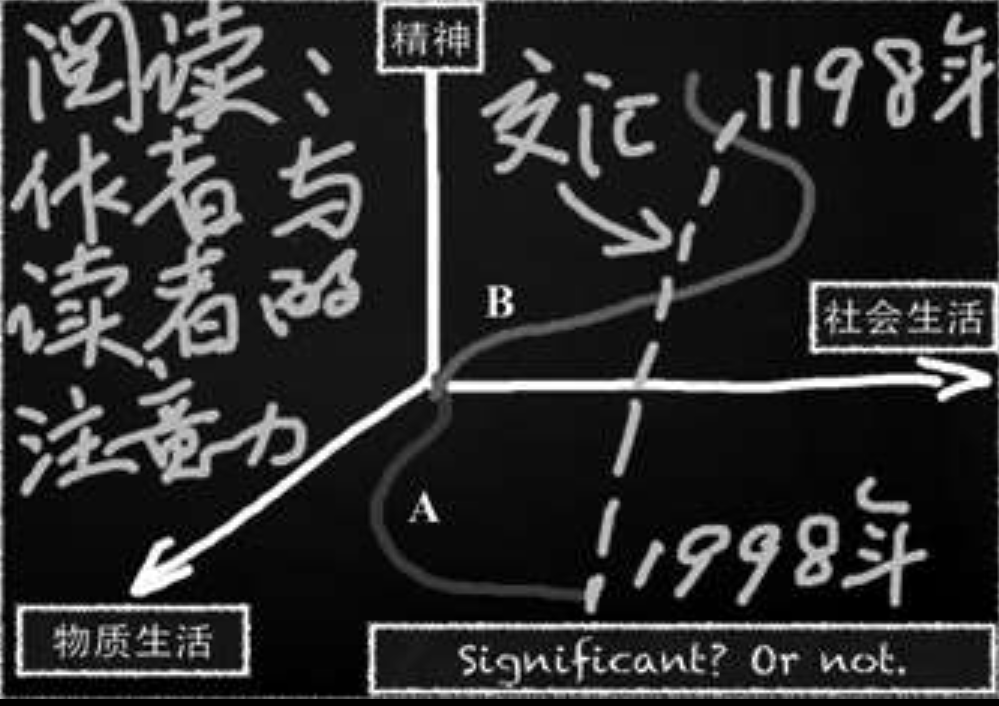 精神
阅读：
作者与
读者的
注意力
交汇
1198年
B
社会生活
A
1998年
物质生活
Significant? Or not.